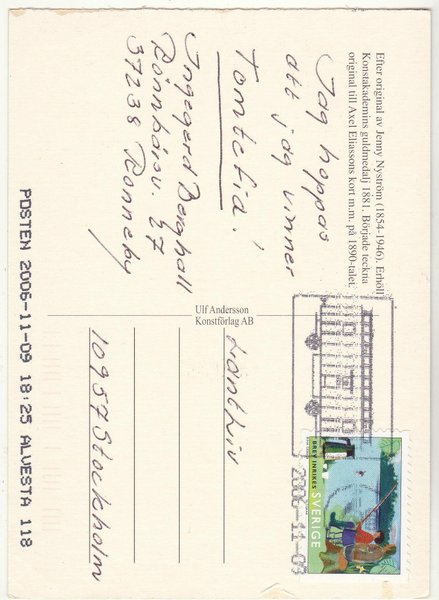 Efter original av Jenny Nyström (1854-1946). Erhöll
Konstakademins guldmedalj 1881. Började teckna
original till Axel Eliassons kort m.m. på 1890-talet.
Jag hoppas
att jag vinner
Tomtefia!
Ingegerd Berghall
37238 Ronneby
Ulf Andersson
Konstförlag AB
Lantliv
10957 Stockholm
BREV INRIKES SVERIGE
2006-11-09
POSTEN 2006-11-09 18:25 ALVESTA 118